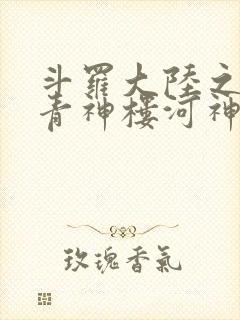 斗羅大陸之
青神樓河神
玫瑰香氣